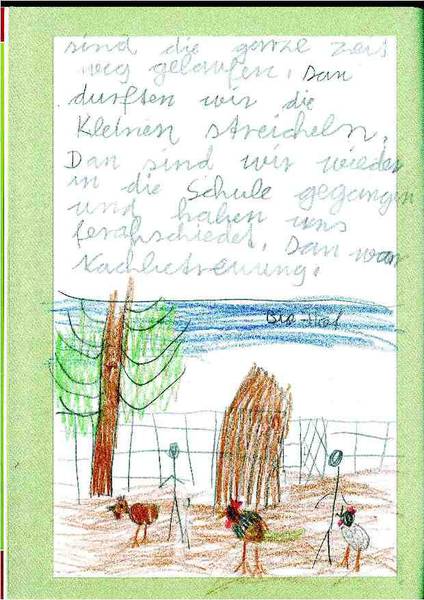 sind die ganze Zeit
weg gelaufen. Dan
durften wir die
Kleinen streicheln.
Dan sind wir wieder
in die Schule gegangen
und haben uns
ferabschiedet. Dan war
Nachbetreuung.